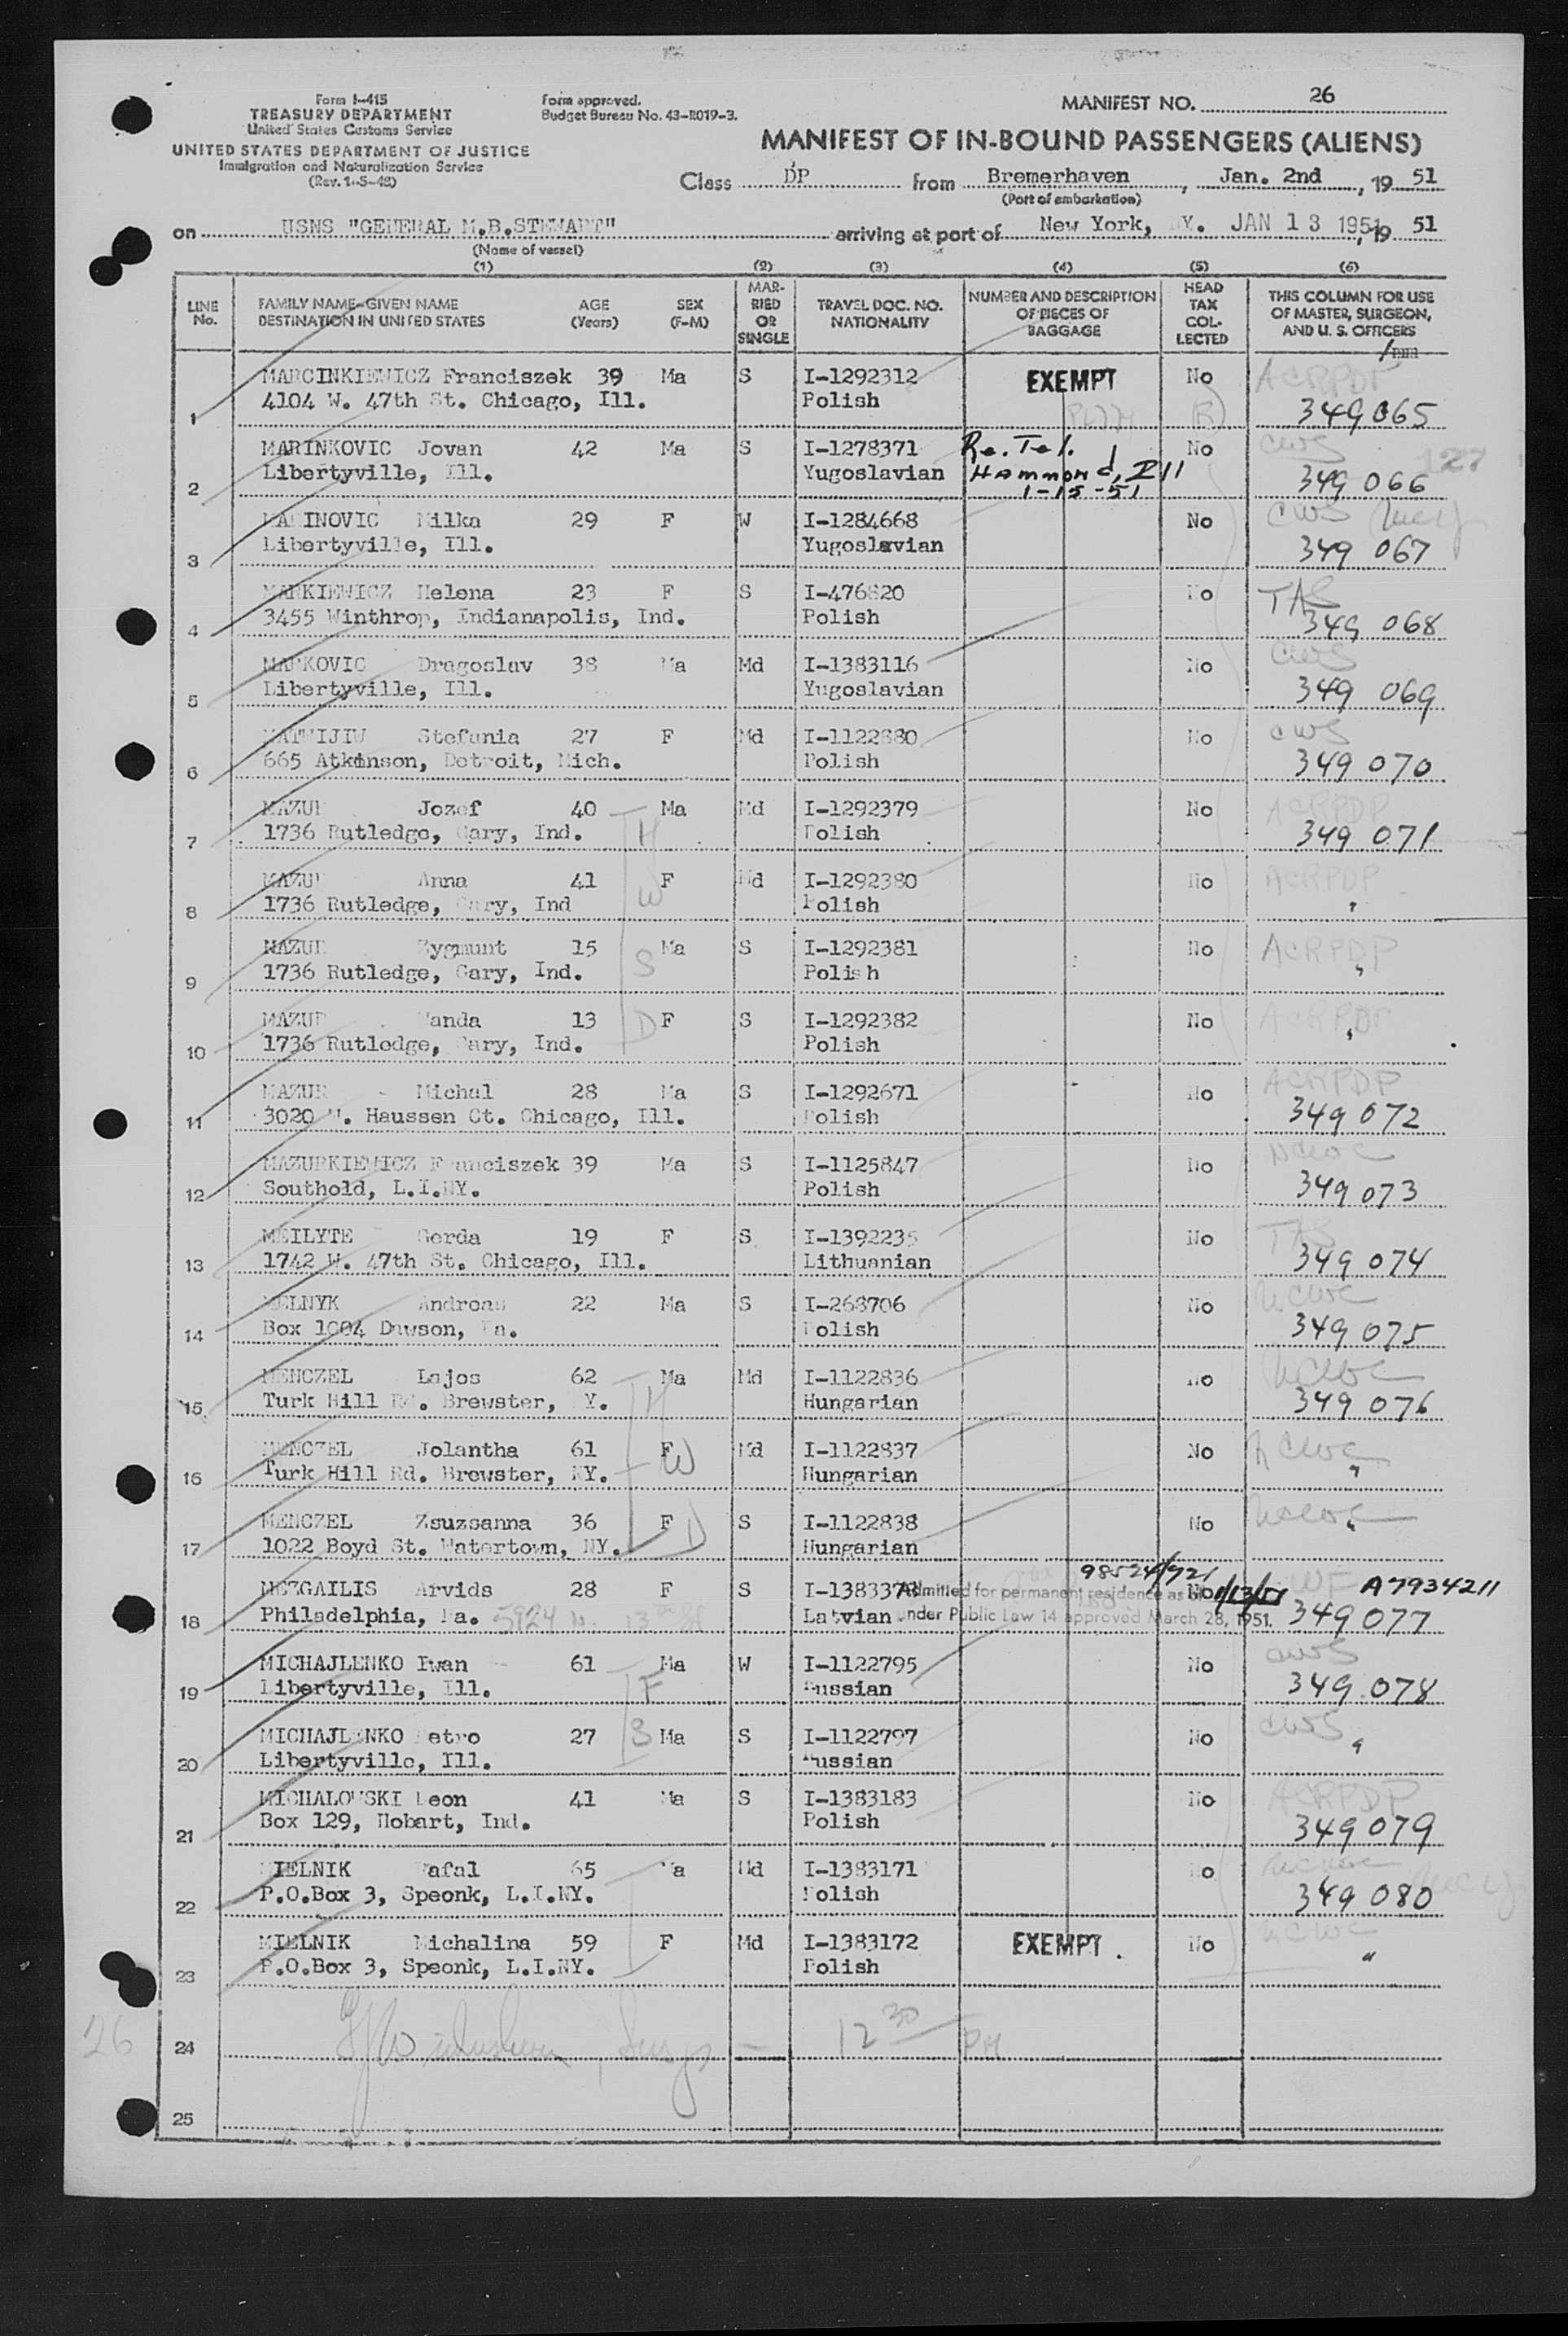 Form I-415
TREASURY DEPARTMENT
United States Customs Service
UNITED STATES DEPARTMENT OF JUSTICE
Immigration and Naturalization Service
(Rev. 1-5-48)
Form approved.
Budget Bureau No. 43-R019-3.
MANIFEST NO. 26
MANIFEST OF IN-BOUND PASSENGERS (ALIENS)
Class DP from Bremerhaven, Jan. 2nd, 19 51
(Port of embarkation)
on USNS "GENERAL M.B.STEWART" arriving at port of New York, NY. JAN 13 1951, 19 51
(Name of vessel)
(1) (2) (3) (4) (5) (6)
LINE No. FAMILY NAME-GIVEN NAME DESTINATION IN UNITED STATES AGE (Years) SEX (F-M) MARRIED OR SINGLE TRAVEL DOC. NO. NATIONALITY NUMBER AND DESCRIPTION OF PIECES OF BAGGAGE HEAD TAX COLLECTED THIS COLUMN FOR USE OF MASTER, SURGEON, AND U. S. OFFICERS
MARCINKIEWICZ Franciszek 39 Ma S I-1292312 EXEMPT No ACRPDP
1 4104 W. 47th St. Chicago, Ill. Polish 349065
MARINKOVIC Jovan 42 Ma S I-1278371 Re. Tel. No CWS 127
2 Libertyville, Ill. Yugoslavian Hammond, Ill 349 066
1-15-51
MARINOVIC Milka 29 F W I-1284668 No CWS
3 Libertyville, Ill. Yugoslavian 349 067
MARKIEWICZ Helena 23 F S I-476820 No TAS
4 3455 Winthrop, Indianapolis, Ind. Polish 349 068
MARKOVIC Dragoslav 38 Ma Md I-1383116 No CWS
5 Libertyville, Ill. Yugoslavian 349 069
MATWIJIW Stefania 27 F Md I-1122880 No CWS
6 665 Atkinson, Detroit, Mich. Polish 349 070
MAZUR Jozef 40 Ma Md I-1292379 No ACRPDP
7 1736 Rutledge, Gary, Ind. H Polish 349 071
MAZUR Anna 41 F Md I-1292380 No ACRPDP
8 1736 Rutledge, Gary, Ind W Polish "
MAZUR Zygmunt 15 Ma S I-1292381 No ACRPDP
9 1736 Rutledge, Gary, Ind. S Polish "
MAZUR Wanda 13 D F S I-1292382 No ACRPDP
10 1736 Rutledge, Gary, Ind. Polish "
MAZUR Michal 28 Ma S I-1292671 No ACRPDP
11 3020 N. Haussen Ct. Chicago, Ill. Polish 349 072
MAZURKIEWICZ Franciszek 39 Ma S I-1125847 No NCWC
12 Southold, L.I.NY. Polish 349 073
MEILYTE Gerda 19 F S I-1392235 No TAS
13 1742 W. 47th St. Chicago, Ill. Lithuanian 349 074
MELNYK Andreas 22 Ma S I-268706 No NCWC
14 Box 1004 Dawson, Pa. Polish 349 075
MENCZEL Lajos 62 Ma Md I-1122836 No NCWC
15 Turk Hill Rd. Brewster, NY. H Hungarian 349 076
MENCZEL Jolantha 61 F Md I-1122837 No NCWC
16 Turk Hill Rd. Brewster, NY. W Hungarian "
MENCZEL Zsuzsanna 36 F S I-1122838 No NCWC
17 1022 Boyd St. Watertown, NY. D Hungarian "
98524/721
MEZGAILIS Arvids 28 F S I-1383378 Admitted for permanent residence as of 1/13/51 No LWF A7934211
18 Philadelphia, Pa. 5924 N. 13th St Latvian under Public Law 14 approved March 28, 1951. 349077
MICHAJLENKO Iwan 61 Ma W I-1122795 No CWS
19 Libertyville, Ill. F Russian 349 078
MICHAJLENKO Petro 27 S Ma S I-1122797 No CWS
20 Libertyville, Ill. Russian "
MICHALOWSKI Leon 41 Ma S I-1383183 No ACRPDP
21 Box 129, Hobart, Ind. Polish 349079
MIELNIK Rafal 65 Ma Md I-1383171 No NCWC
22 P.O.Box 3, Speonk, L.I.NY. Polish 349 080
MIELNIK Michalina 59 F Md I-1383172 EXEMPT. No NCWC
23 P.O.Box 3, Speonk, L.I.NY. Polish "
26 24 12 30 PM
25